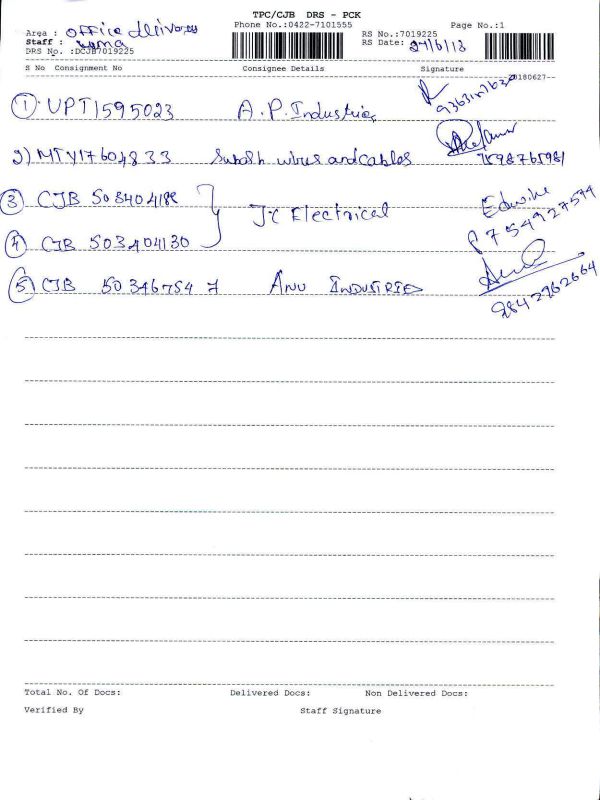 TPC/CJB DRS - PCK
Phone No.:0422-7101555 Page No.:1
Area : office delivery
RS No.:7019225
Staff :
RS Date: 27/6/18
DRS No. :DCJB7019225
S No Consignment No Consignee Details Signature
20180627--
① UPT1595023 A.P. Industries
2) MTY17604833 Subash wires and cables
7598765981
③ CJB 503404188 JC Electrical
Edwin
④ CJB 503404130
P 754927594
⑤ CJB 503467547 ANU INDUSTRIES
9842262664
Total No. Of Docs: Delivered Docs: Non Delivered Docs:
Verified By Staff Signature